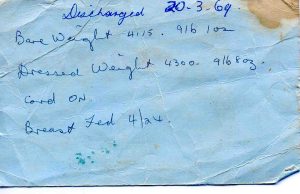 Discharged 20-3-69.
Bare Weight 4115. 9lb 1oz
Dressed Weight 4300. 9lb 8oz.
Cord ON
Breast Fed 4/24.